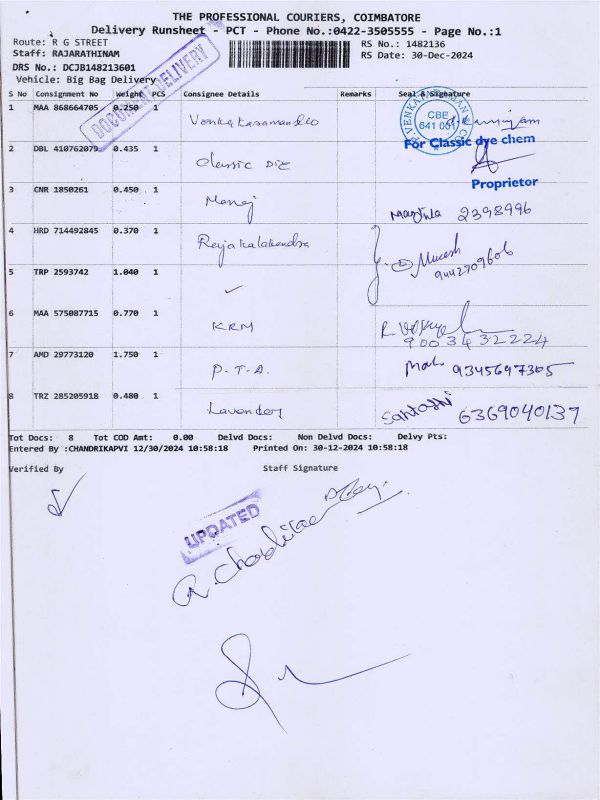 THE PROFESSIONAL COURIERS, COIMBATORE
Delivery Runsheet - PCT - Phone No.:0422-3505555 - Page No.:1
Route: R G STREET
Staff: RAJARATHINAM
DRS No.: DCJB148213601
Vehicle: Big Bag Delivery
RS No.: 1482136
RS Date: 30-Dec-2024
DOCUMENT DELIVERY
S No Consignment No Weight PCS Consignee Details Remarks Seal & Signature
1 MAA 868664705 0.250 1
CBE 641 001
2 DBL 410762079 0.435 1 classic DIE
For Classic dye chem
Proprietor
3 CNR 1850261 0.450 1 Manoj 2398996
4 HRD 714492845 0.370 1 Mukesh
5 TRP 2593742 1.040 1 ✓
6 MAA 575087715 0.770 1 KRM
9003432224
7 AMD 29773120 1.750 1 P.T.A. 9345697305
8 TRZ 285205918 0.480 1 Lavender Santoshi 6369040137
Tot Docs: 8 Tot COD Amt: 0.00 Delvd Docs: Non Delvd Docs: Delvy Pts:
Entered By :CHANDRIKAPVI 12/30/2024 10:58:18 Printed On: 30-12-2024 10:58:18
Verified By Staff Signature
UPDATED